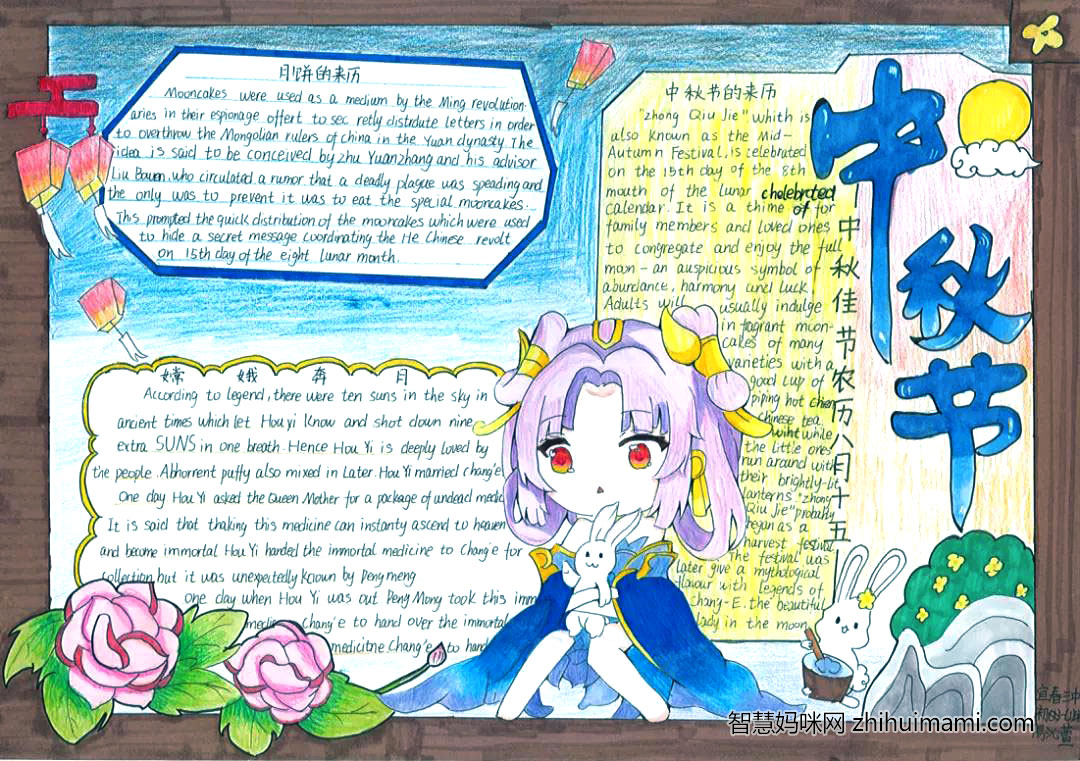 月饼的来历
Mooncakes were used as a medium by the Ming revolution-
aries in their espionage offert to sec retly distrdute letters in order
to overthrow the Mongolian rulers of china in the Yuan dynasty The
idea is said to be conceived by zhu Yuanzhang and his advisor
Liu Bowen.who circulated a rumor that a deadly plague was speading and
the only was to prevent it was to eat the special mooncakes.
This prompted the quick distribution of the mooncakes which were used
to hide a secret message coordinating the He Chinese revolt
on 15th day of the eight lunar month.
中秋节的来历
"zhong Qiu Jie" whith is
also known as the Mid-
Autumn Festival, is celebrated
on the 15th day of the 8th
mouth of the lunar chelebrated
calendar. It is a thime of for
family members and loved ones
to congregate and enjoy the full
moon-an auspicious symbol of
abundance, harmony and luck
Adults will usually indulge
in fagrant moon-
cakes of many
varieties with a
good cup of
piping hot chien
Chinese tea.
wiht while
the little ones
run around with
their brightly-lit
lanterns "zhong
Qiu Jie" probably
began as a
harvest festival
The festival was
later give a mythological
flavour with legends of
Chang-E. the beautiful
lady in the moon
中秋节
中秋佳节农历八月十五
嫦娥奔月
According to legend, there were ten suns in the sky in
ancient times which let Hou yi know and shot down nine
extra SUNS in one breath. Hence Hou Yi is deeply loved by
the people. Abhorrent puffy also mixed in Later. Hou Yi married chang'e
One day Hou Yi asked the Queen Mother for a package of undead medic
It is said that thaking this medicine can instanty ascend to heaven
and become immortal Hou Yi handed the immortal medicine to Chang'e for
collection but it was unexpectedly known by Peng meng
one day when Hou Yi was out Peng Mong took this imm
medic Chang'e to hand over the immortal
medicitne Chang'e to hand
宜春三中
智慧妈咪网 zhihuimami.com